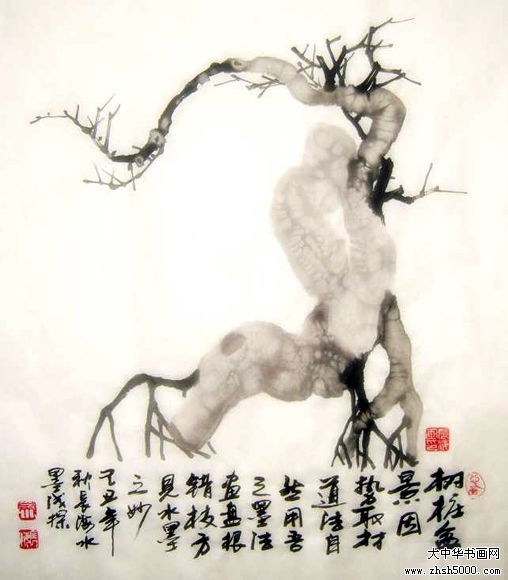 树桩盆
景因
势取材
道法自
然用吾
之墨法
画盘根
错枝方
见水墨
之妙
己丑年
秋长海水
墨探
大中华书画网
www.zhsh5000.com